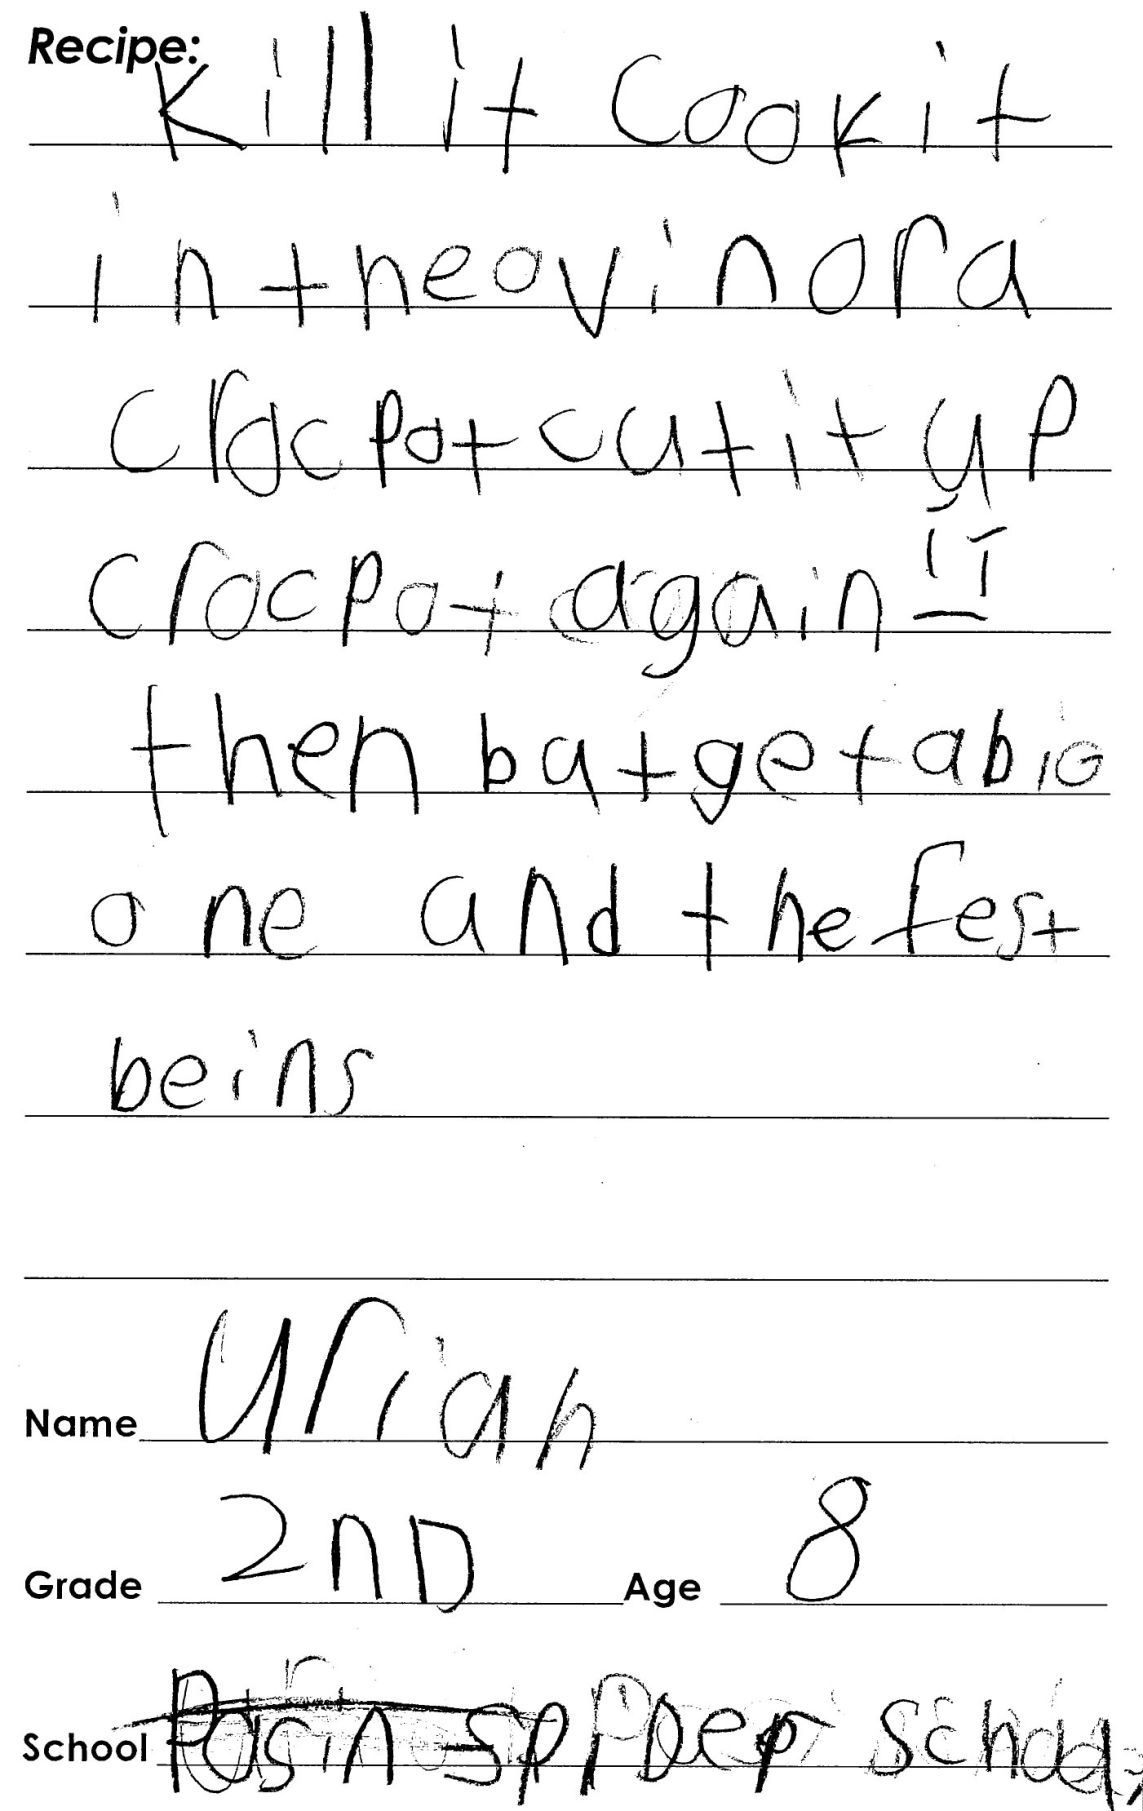 Recipe: Kill it Cook it
in the ovin or a
crocpot cut it up
crocpot again!!
then bat get a big
one and the fest
beins
Name Uriah
Grade 2nD Age 8
School spiDer school